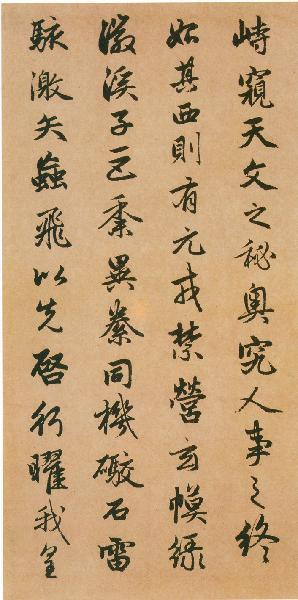 峙窺天文之秘奥究人事之終
始其西則有元戎禁營玄幙緑
徽溪子巨黍異絭同機礮石雷
駭激矢蝱飛以先啓行曜我皇